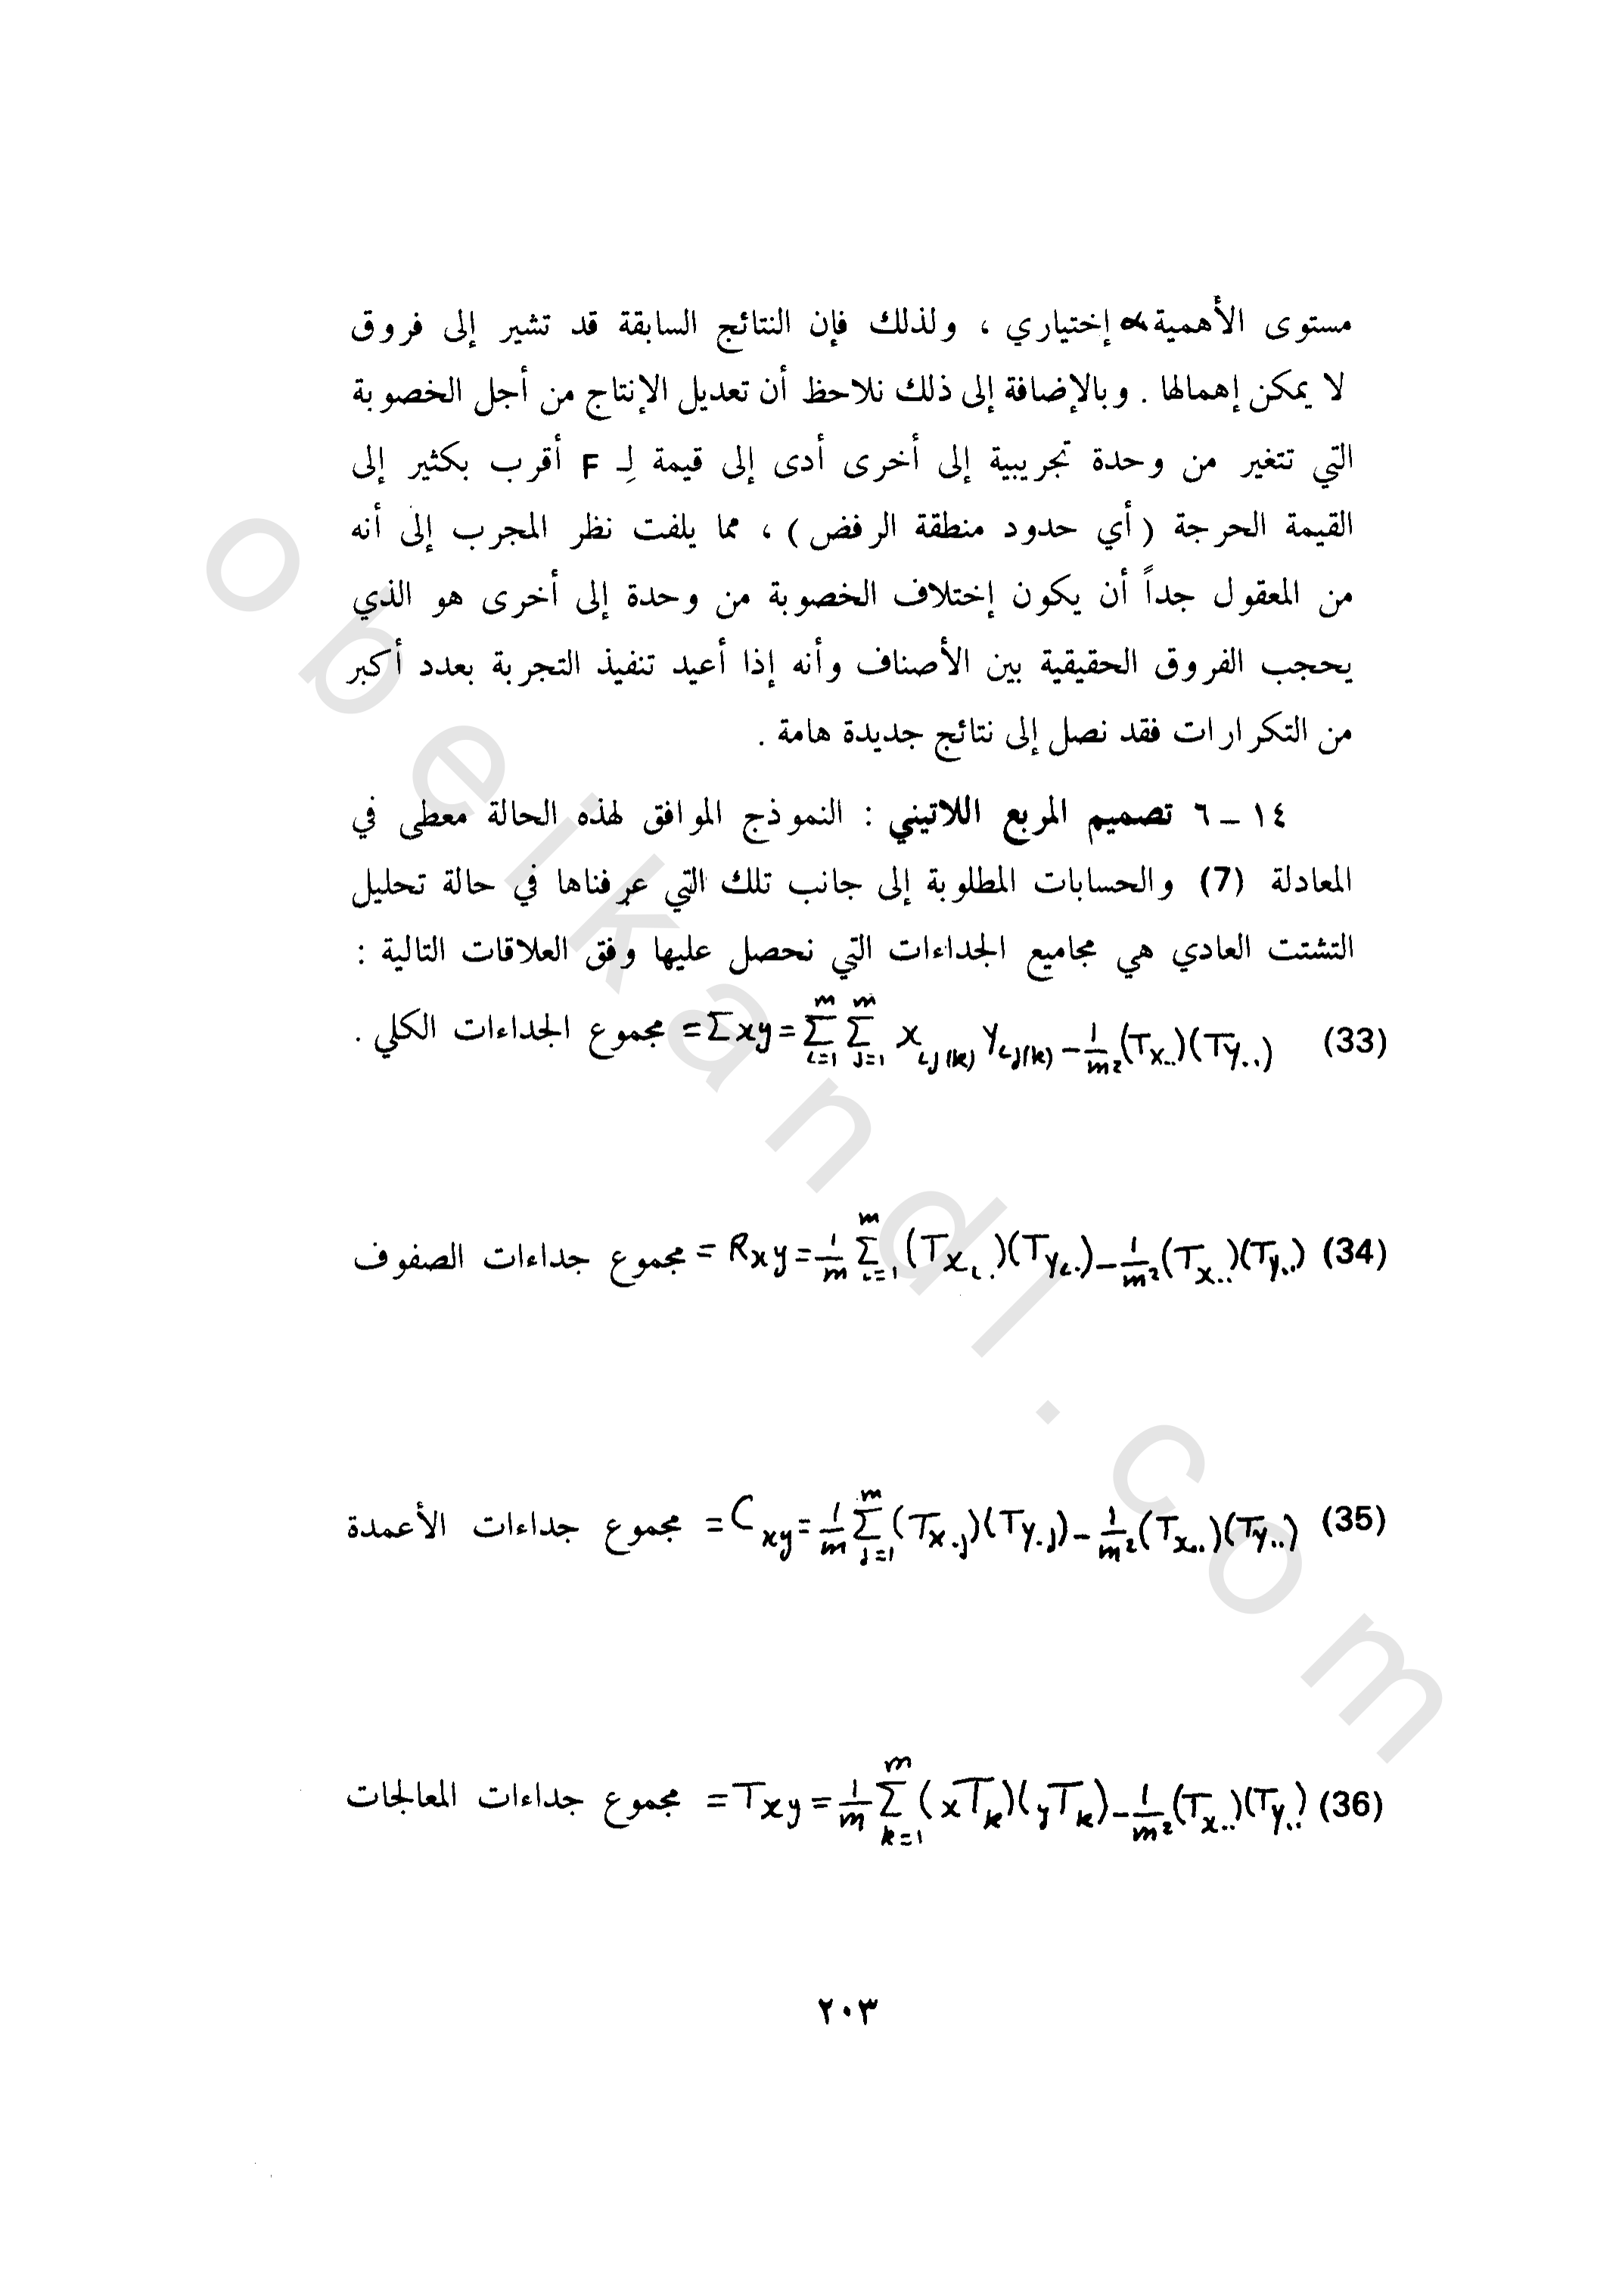 مستوى الأهمية α إختياري ، ولذلك فإن النتائج السابقة قد تشير إلى فروق
لا يمكن إهمالها . وبالإضافة إلى ذلك نلاحظ أن تعديل الإنتاج من أجل الخصوبة
التي تتغير من وحدة تجريبية إلى أخرى أدى إلى قيمة لِـ F أقرب بكثير إلى
القيمة الحرجة ( أي حدود منطقة الرفض ) ، مما يلفت نظر المجرب إلى أنه
من المعقول جداً أن يكون إختلاف الخصوبة من وحدة إلى أخرى هو الذي
يحجب الفروق الحقيقية بين الأصناف وأنه إذا أعيد تنفيذ التجربة بعدد أكبر
من التكرارات فقد نصل إلى نتائج جديدة هامة .
١٤ – ٦ تصميم المربع اللاتيني : النموذج الموافق لهذه الحالة معطى في
المعادلة (7) والحسابات المطلوبة إلى جانب تلك التي عرفناها في حالة تحليل
التشتت العادي هي مجاميع الجداءات التي نحصل عليها وفق العلاقات التالية :
مجموع الجداءات الكلي . = Σxy = \sum_{i=1}^{m} \sum_{j=1}^{m} x_{ij(k)} y_{ij(k)} - \frac{1}{m^2} (T_{x..})(T_{y..}) (33)
مجموع جداءات الصفوف = R_{xy} = \frac{1}{m} \sum_{i=1}^{m} (T_{x i.})(T_{y i.}) - \frac{1}{m^2} (T_{x..})(T_{y..}) (34)
مجموع جداءات الأعمدة = C_{xy} = \frac{1}{m} \sum_{j=1}^{m} (T_{x.j})(T_{y.j}) - \frac{1}{m^2} (T_{x..})(T_{y..}) (35)
مجموع جداءات المعالجات = T_{xy} = \frac{1}{m} \sum_{k=1}^{m} (_{x}T_{k})(_{y}T_{k}) - \frac{1}{m^2} (T_{x..})(T_{y..}) (36)
٢٠٣
obeikandl.com